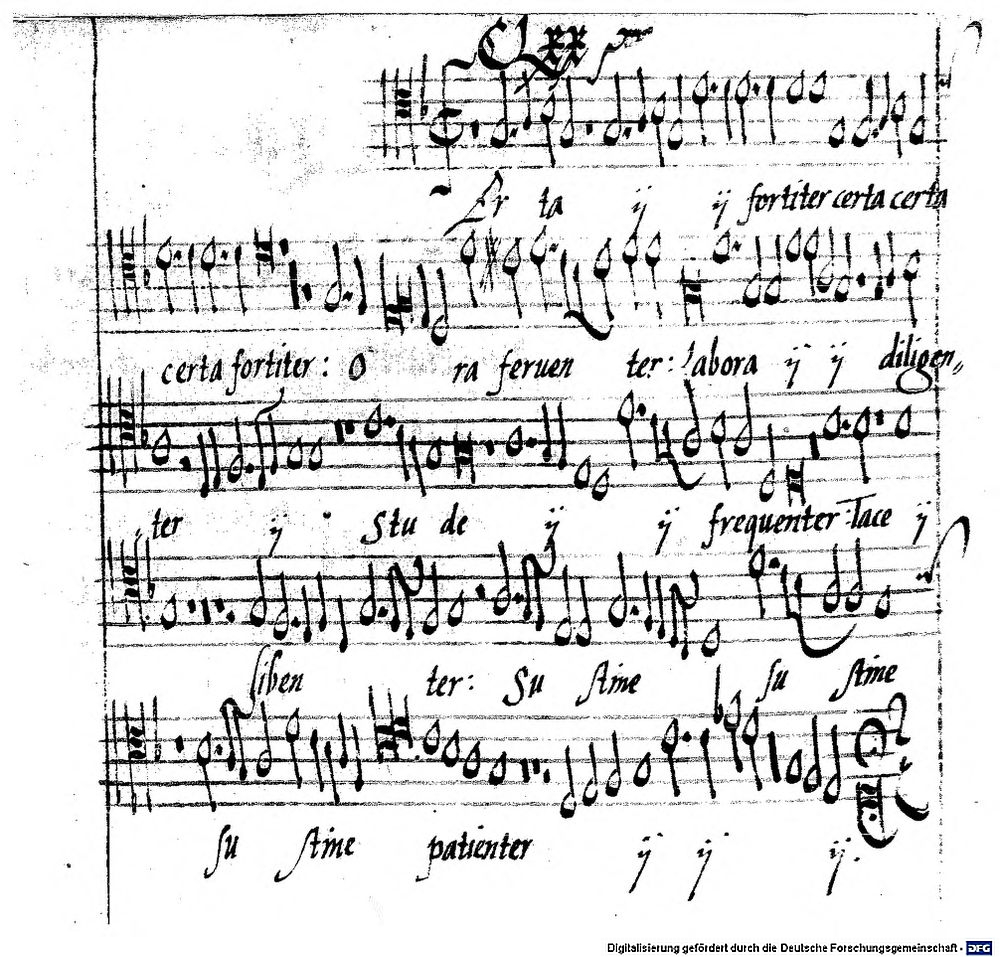 Er ta ij ij fortiter certa certa
certa fortiter: O ra feruen ter: labora ij ij diligen„
ter ij Stu de ij ij frequenter Tace ij
liben ter: Su stine su stine
su stine patienter ij ij ij.
Digitalisierung gefördert durch die Deutsche Forschungsgemeinschaft - DFG